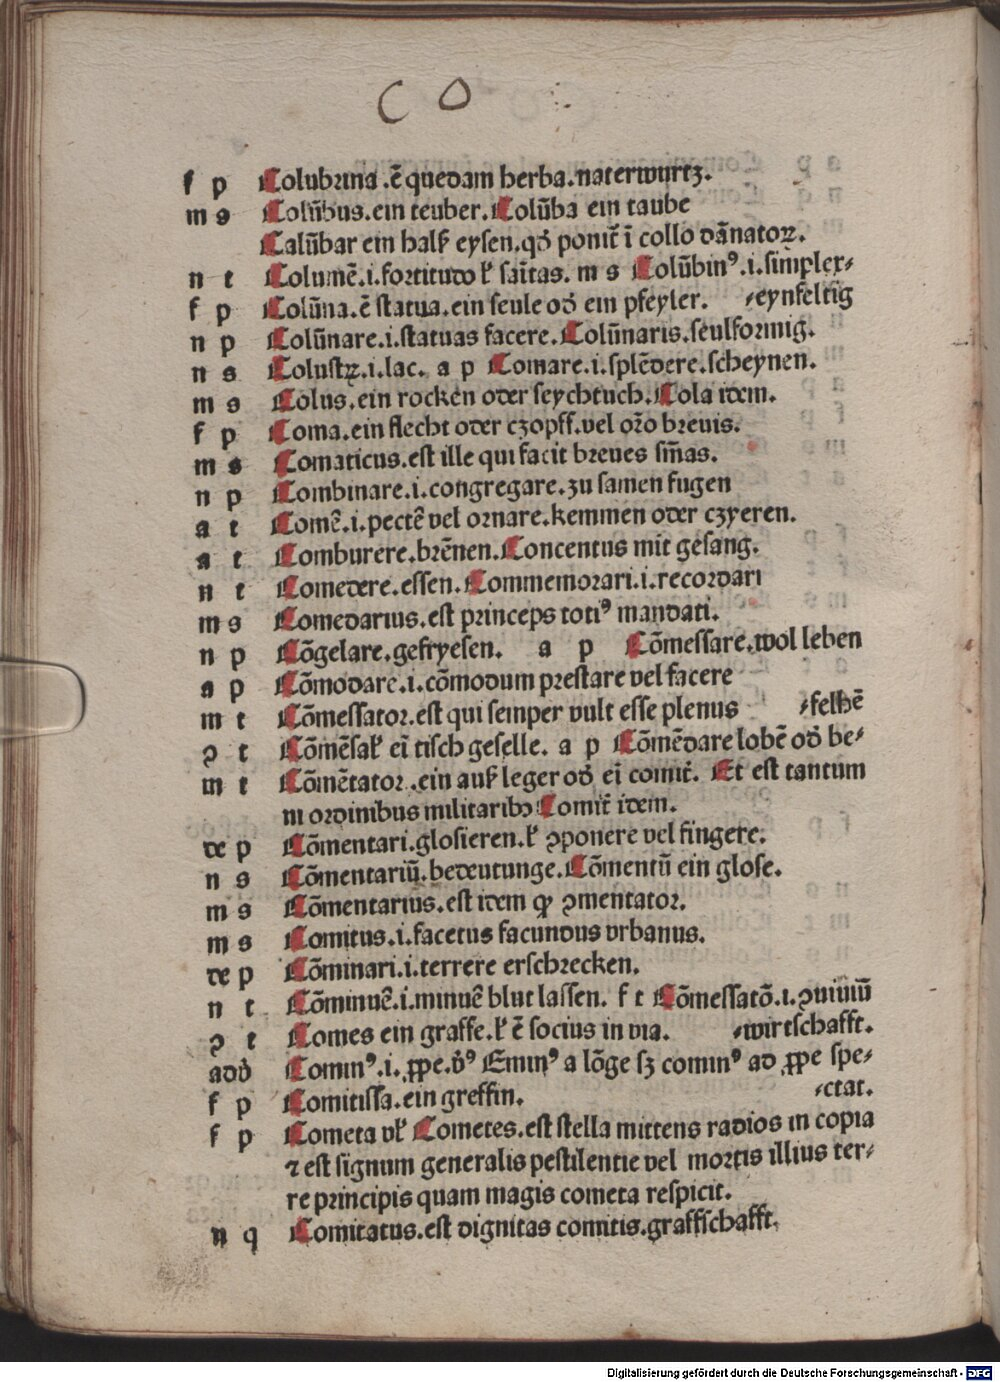 C O
f p Colubrina .ē quedam herba.naterwurtz.
m s Colūbus.ein teuber.Colūba ein taube
Calūbar ein halß eysen.qđ ponit̄ ī collo dānatoꝝ.
n t Columē.i.fortitudo ł sāitas. m s Colūbinꝰ.i.simplex⸗
f p Colūna.ē statua.ein seule odˀ ein pfeyler. ⸗eynfeltig
n p Colūnare.i.statuas facere.Colūnaris.seulformig.
n s Colustꝝ.i.lac. a p Comare.i.splēdere.scheynen.
m s Colus.ein rocken oder seychtuch.Cola idem.
f p Coma.ein flecht oder czopff.vel orō breuis.
m s Comaticus.est ille qui facit breues sm̄as.
n p Combinare.i.congregare.zu samen fugen
a t Comē.i.pectē vel ornare.kemmen oder czyeren.
a t Comburere.brēnen.Concentus mit gesang.
n t Comedere.essen.Commemorari.i.recordari
m s Comedarius.est princeps totiꝰ mandati.
n p Cōgelare.gefryesen. a p Cōmessare.wol leben
a p Cōmodare.i.cōmodum prestare vel facere
m t Cōmessator.est qui semper vult esse plenus ⸗felhē
ꝯ t Cōmēsał eī tisch geselle. a p Cōmēdare lobē odˀ be⸗
m t Cōmētator.ein auß leger odˀ eī comit̄. Et est tantum
in ordinibus militaribꝫ Comit̄ idem.
de p Cōmentari.glosieren.ł ꝯponere vel fingere.
n s Cōmentariū.bedeutunge.Cōmentū ein glose.
m s Cōmentarius.est idem qđ ꝯmentator.
m s Comitus.i.facetus facundus vrbanus.
de p Cōminari.i.terrere erschrecken.
n t Cōminuē.i.minuē blut lassen. f t Cōmessatō.i.ꝯuiuiū
ꝯ t Comes ein graffe.ł ē socius in via. ⸗wirtschafft.
adđ Cominꝰ.i.ꝓpe.v̓ꝰ Eminꝰ a lōge sꝫ cominꝰ ad ꝓpe spe⸗
f p Comitissa.ein greffin. ⸗ctat.
f p Cometa vł Cometes.est stella mittens radios in copia
⁊ est signum generalis pestilentie vel mortis illius ter⸗
re principis quam magis cometa respicit.
n q Comitatus.est dignitas comitis.graffschafft.
Digitalisierung gefördert durch die Deutsche Forschungsgemeinschaft - DFG